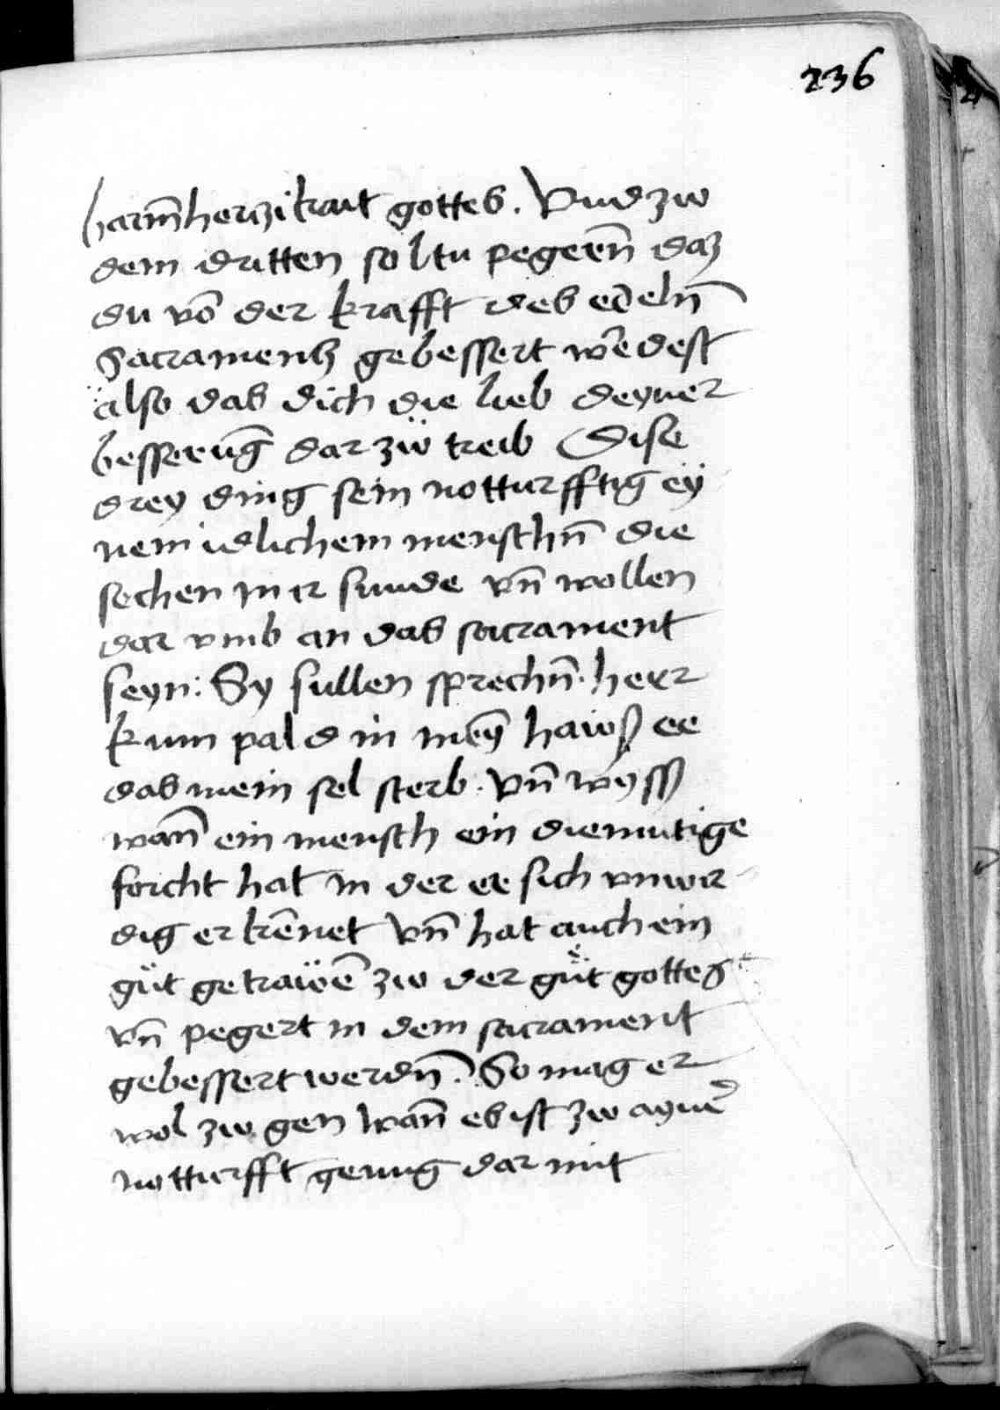 236
barm̄herzikait gottes. Vnd zw
dem dritten soltu pegeren̄ daz
du vō der krafft des edeln̄
Sacramentz gebessert wēdest
also das dich die lieb deyner
besserūg dar zẅ treib Dise
drey ding sein notturfftig eÿ
nem idlichem menschn̄ die
sechen in ir sunde vn̄ wollen
dar vmb an das sacrament
seyn: Sy sullen sprechn̄. herr
kum pald in meȳ hawß ee
das mein sel sterb. Vn̄ wyss
wan̄ ein mensch ein diemutige
forcht hat in der er sich vnwir
dig erkēnet Vn̄ hat auch ein
güt getraẅē zw der güt gottes
vn̄ pegert in dem sacrament
gebessert werdn̄. So mag er
wol zw gen Wan̄ es ist zw ayner
notturfft genug dar mit